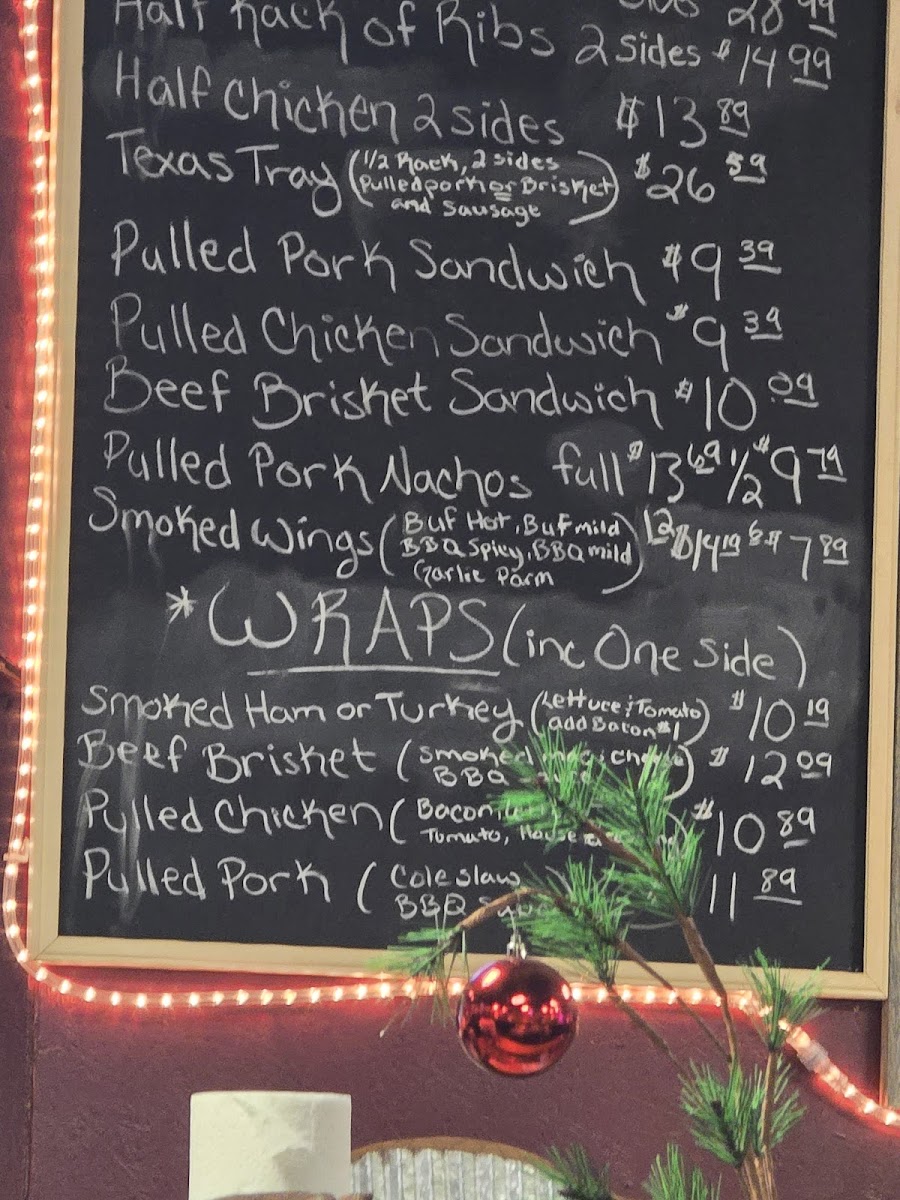 28 99
Half Rack of Ribs 2 sides $14 99
Half Chicken 2 sides $13 89
Texas Tray (1/2 Rack, 2 sides
Pulled pork or Brisket
and Sausage) $26 59
Pulled Pork Sandwich $9 39
Pulled Chicken Sandwich $9 39
Beef Brisket Sandwich $10 .09
Pulled Pork Nachos full $13 69 1/2 $9 79
Smoked Wings (Buf Hot, Buf mild
BBQ Spicy, BBQ mild
Garlic Parm) 12 $14 19 $7 89
*WRAPS (inc One Side)
Smoked Ham or Turkey (Lettuce & Tomato
add Bacon $1) $10 19
Beef Brisket (Smoked
BBQ ) $12 09
Pulled Chicken (Bacon,
Tomato, House ) $10 89
Pulled Pork (Coleslaw
BBQ 11 89